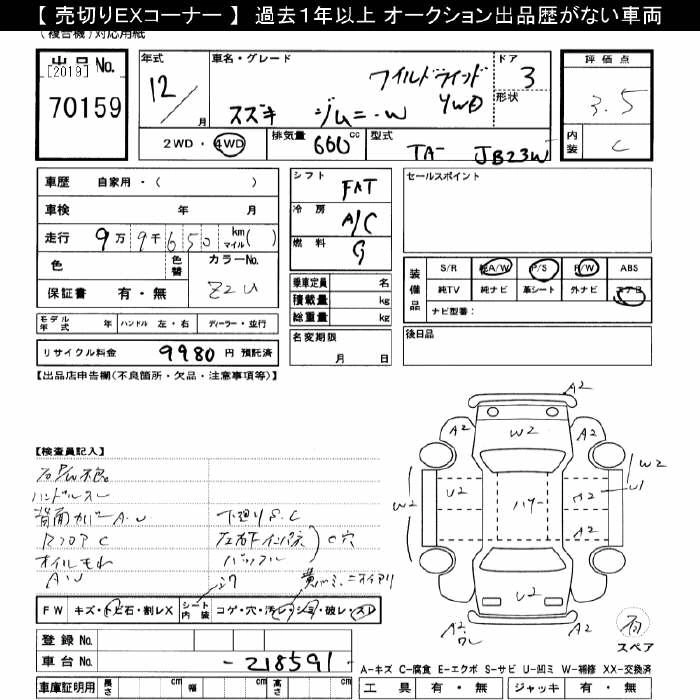 【 売切りEXコーナー 】 過去1年以上 オークション出品歴がない車両
(複合機)対応用紙
出品 No.
[2019]
70159
年式
12/
月
車名・グレード
スズキ ジムニーW
ワイルドウインド
4WD
ドア
3
形状
評価点
3.5
内装
C
2WD・4WD
排気量 660 cc
型式 TA- JB23W
車歴 自家用・( )
車検 年 月
走行 9万9千650 km マイル ( )
色
色替
カラーNo.
Z2U
保証書 有・無
シフト FAT
冷房 A/C
燃料 G
乗車定員 名
積載量 kg
総重量 kg
セールスポイント
装備品
S/R 純A/W P/S P/W ABS
純TV 純ナビ 革シート 外ナビ エアB
ナビ型番:
モデル年式 年 ハンドル 左・右 ディーラー・並行
リサイクル料金 9980 円 預託済
名変期限
月 日
後日品
【出品店申告欄(不良箇所・欠品・注意事項等)】
【検査員記入】
右P/W不良
ハンドルスレ
背面カバーA.U
下廻りS.C
オイルモレ
A.U
FW キズ・トビ石・割レX
シート内装
コゲ・穴・汚レ・シミ・破レ・スレ
登録 No.
車台 No. -218591-
車庫証明用 長さ cm 幅 cm 高さ cm
A2
W2
A2
A2
W2
W2
U2
A2
U1
A2
A2
A2
U2
A2
有
スペア
A-キズ C-腐食 E-エクボ S-サビ U-凹ミ W-補修 XX-交換済
工具 有・無 ジャッキ 有・無